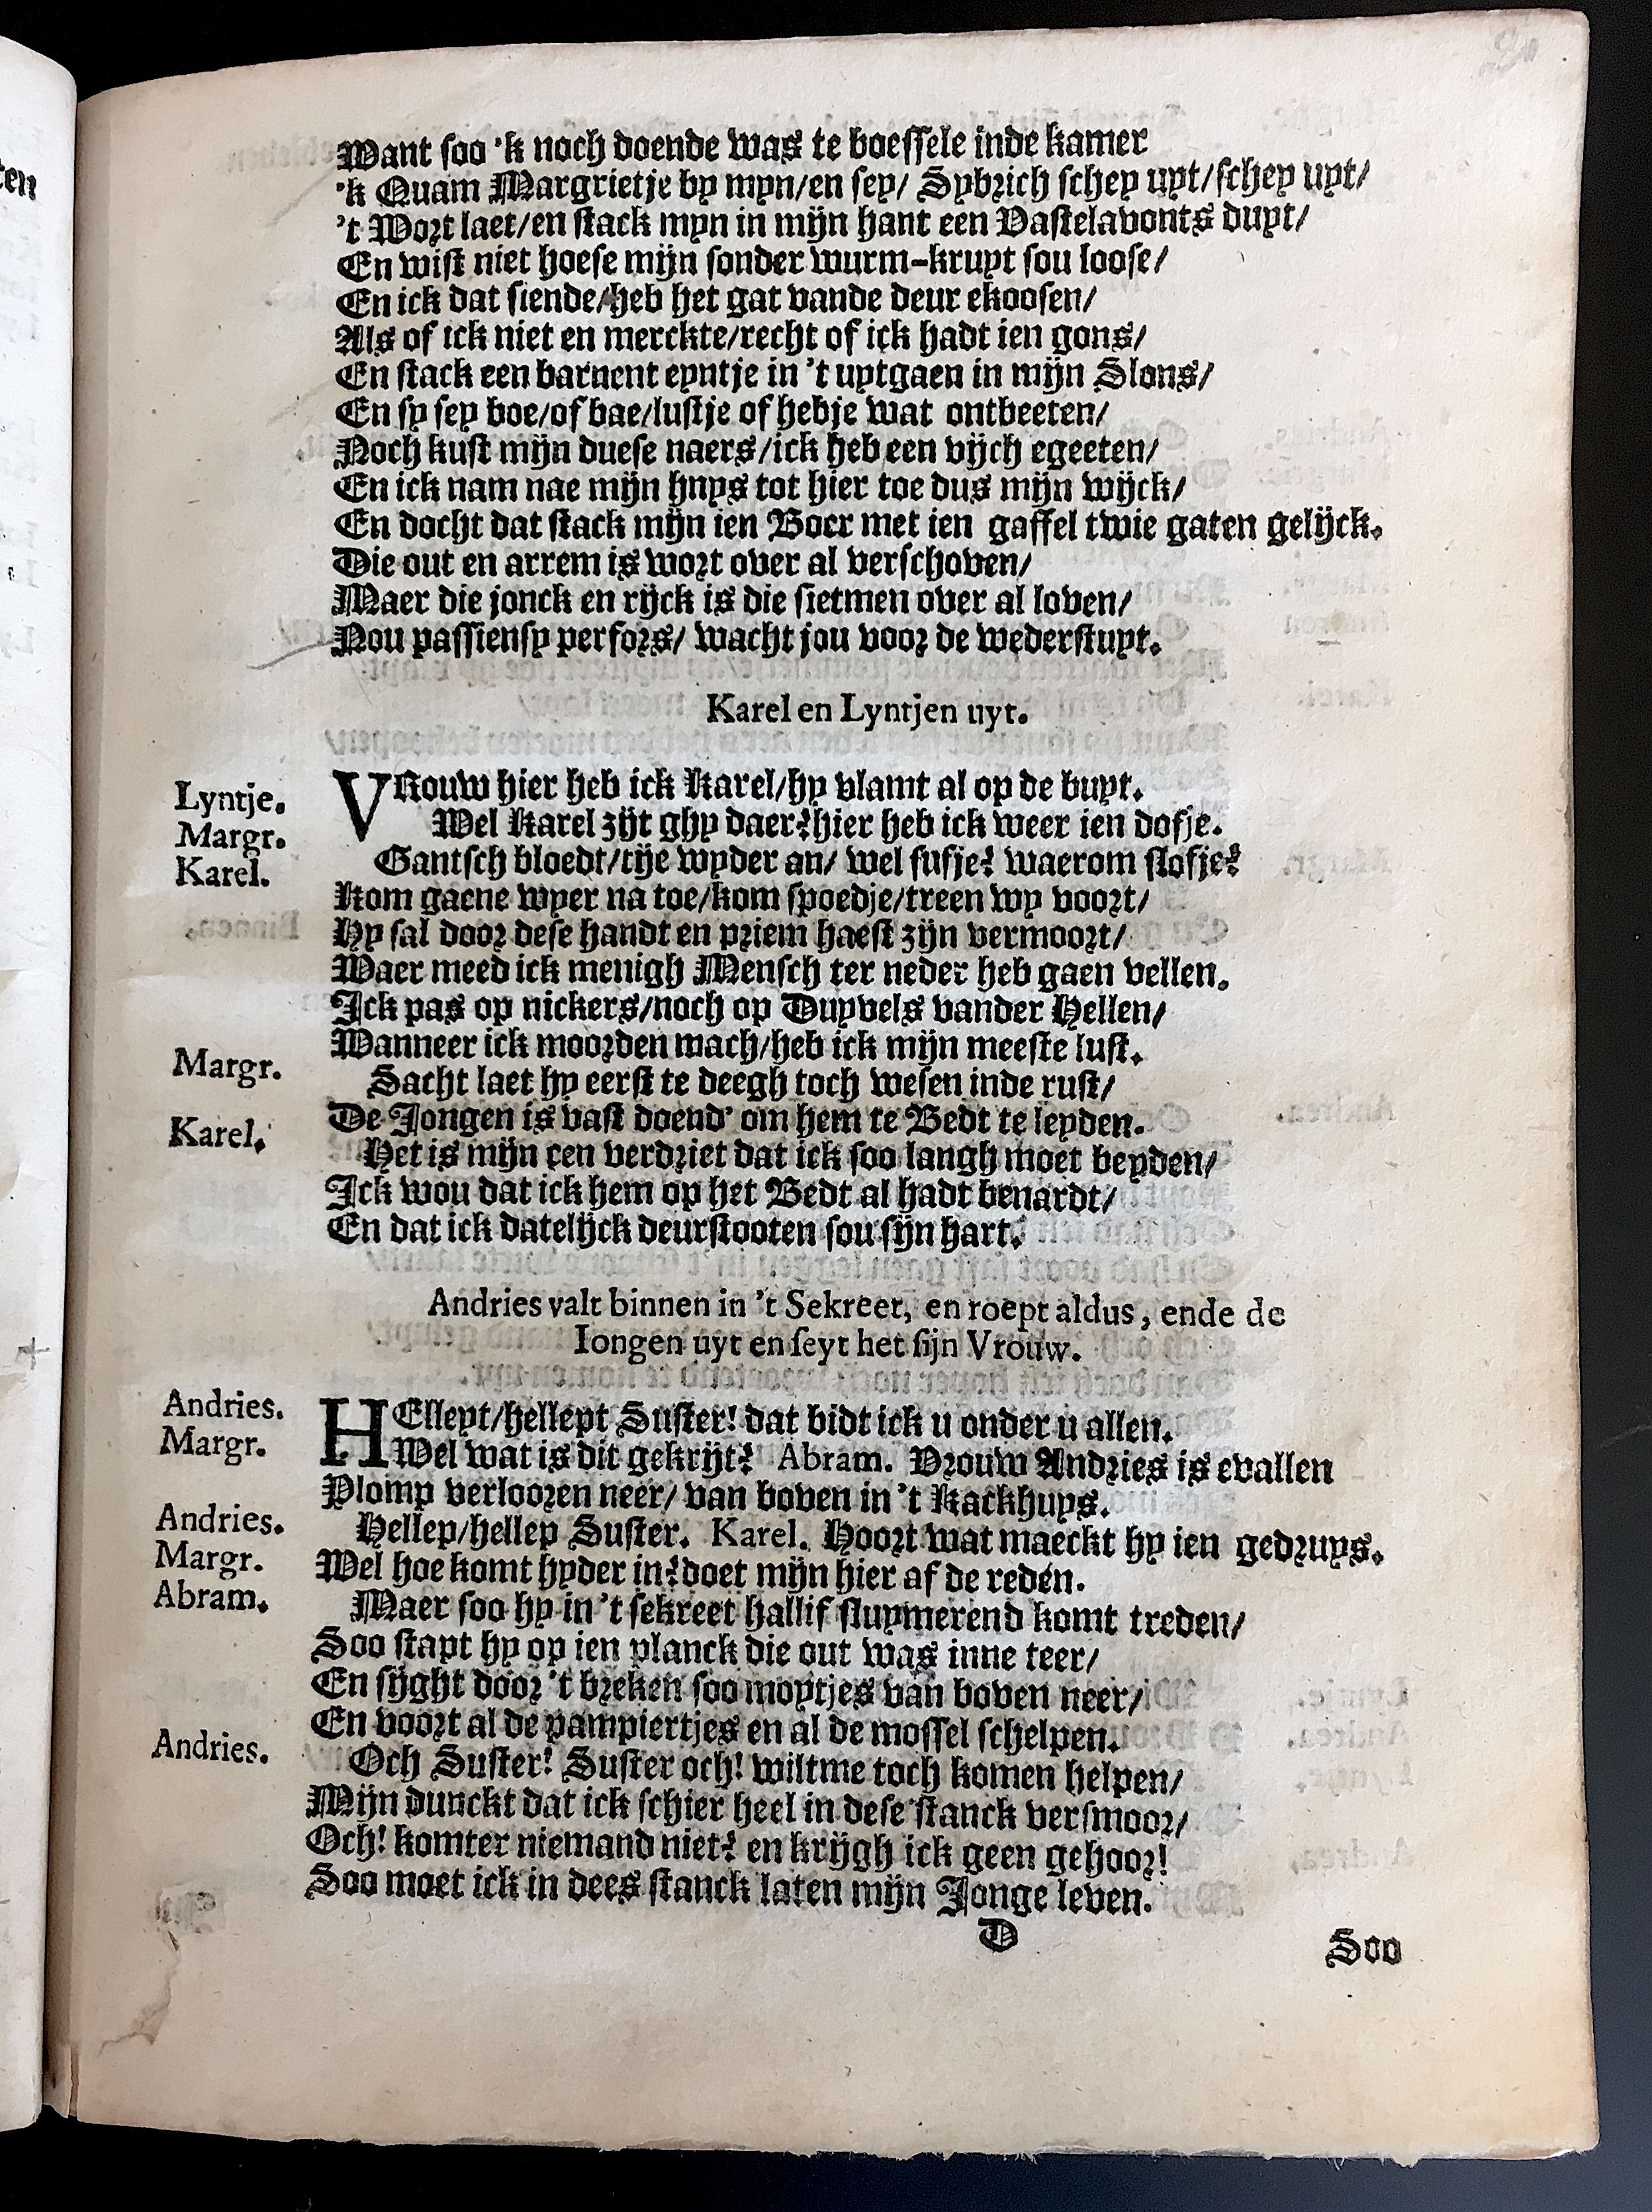 Want soo 'k noch doende was te boessele inde kamer
'k Quam Margrietje by myn/en sey/ Sybrich schey uyt/schey uyt/
't Wort laet/en stack myn in mijn hant een Vastelavonts duyt/
En wist niet hoese mijn sonder wurm-kruyt sou loose/
En ick dat siende/heb het gat vande deur ekoosen/
Als of ick niet en merckte/recht of ick hadt ien gons/
En stack een barnent eyntje in 't uytgaen in mijn Slons/
En sy sey boe/of bae/lustje of hebje wat ontbeeten/
Noch kust mijn duese naers/ick heb een vijch egeeten/
En ick nam nae mijn hnys tot hier toe dus mijn wijck/
En docht dat stack mijn ien Boer met ien gaffel twie gaten gelijck.
Die out en arrem is wort over al verschoven/
Maer die jonck en rijck is die sietmen over al loven/
Nou passiensy perfors/ wacht jou voor de wederstuyt.
Karel en Lyntjen uyt.
Lyntje. VRouw hier heb ick Karel/hy vlamt al op de buyt.
Margr. Wel Karel zijt ghy daer?hier heb ick weer ien dofje.
Karel. Gantsch bloedt/tije wyder an/ wel sufje? waerom slofje?
Kom gaene wyer na toe/kom spoedje/treen wy voort/
Hy sal door dese handt en priem haest zijn vermoort/
Waer meed ick menigh Mensch ter neder heb gaen vellen.
Ick pas op nickers/noch op Duyvels vander Hellen/
Wanneer ick moorden mach/heb ick mijn meeste lust.
Margr. Sacht laet hy eerst te deegh toch wesen inde rust/
De Jongen is vast doend' om hem te Bedt te leyden.
Karel. Het is mijn een verdriet dat ick soo langh moet beyden/
Ick wou dat ick hem op het Bedt al hadt benardt/
En dat ick datelijck deurstooten sou sijn hart.
Andries valt binnen in 't Sekreet, en roept aldus, ende de
Iongen uyt en seyt het sijn Vrouw.
Andries. HEllept/hellept Suster! dat bidt ick u onder u allen.
Margr. Wel wat is dit gekrijt? Abram. Vrouw Andries is evallen
Plomp verlooren neer/ van boven in 't Kackhuys.
Andries. Hellep/hellep Suster. Karel. Hoort wat maeckt hy ien gedruys.
Margr. Wel hoe komt hyder in?doet mijn hier af de reden.
Abram. Maer soo hy in 't sekreet hallif sluymerend komt treden/
Soo stapt hy op ien planck die out was inne teer/
En sijght door 't breken soo moytjes van boven neer/
En voort al de pampiertjes en al de mossel schelpen.
Andries. Och Suster! Suster och! wiltme toch komen helpen/
Mijn dunckt dat ick schier heel in dese stanck versmoor/
Och! komter niemand niet? en krijgh ick geen gehoor!
Soo moet ick in dees stanck laten mijn Jonge leven.
D
Soo